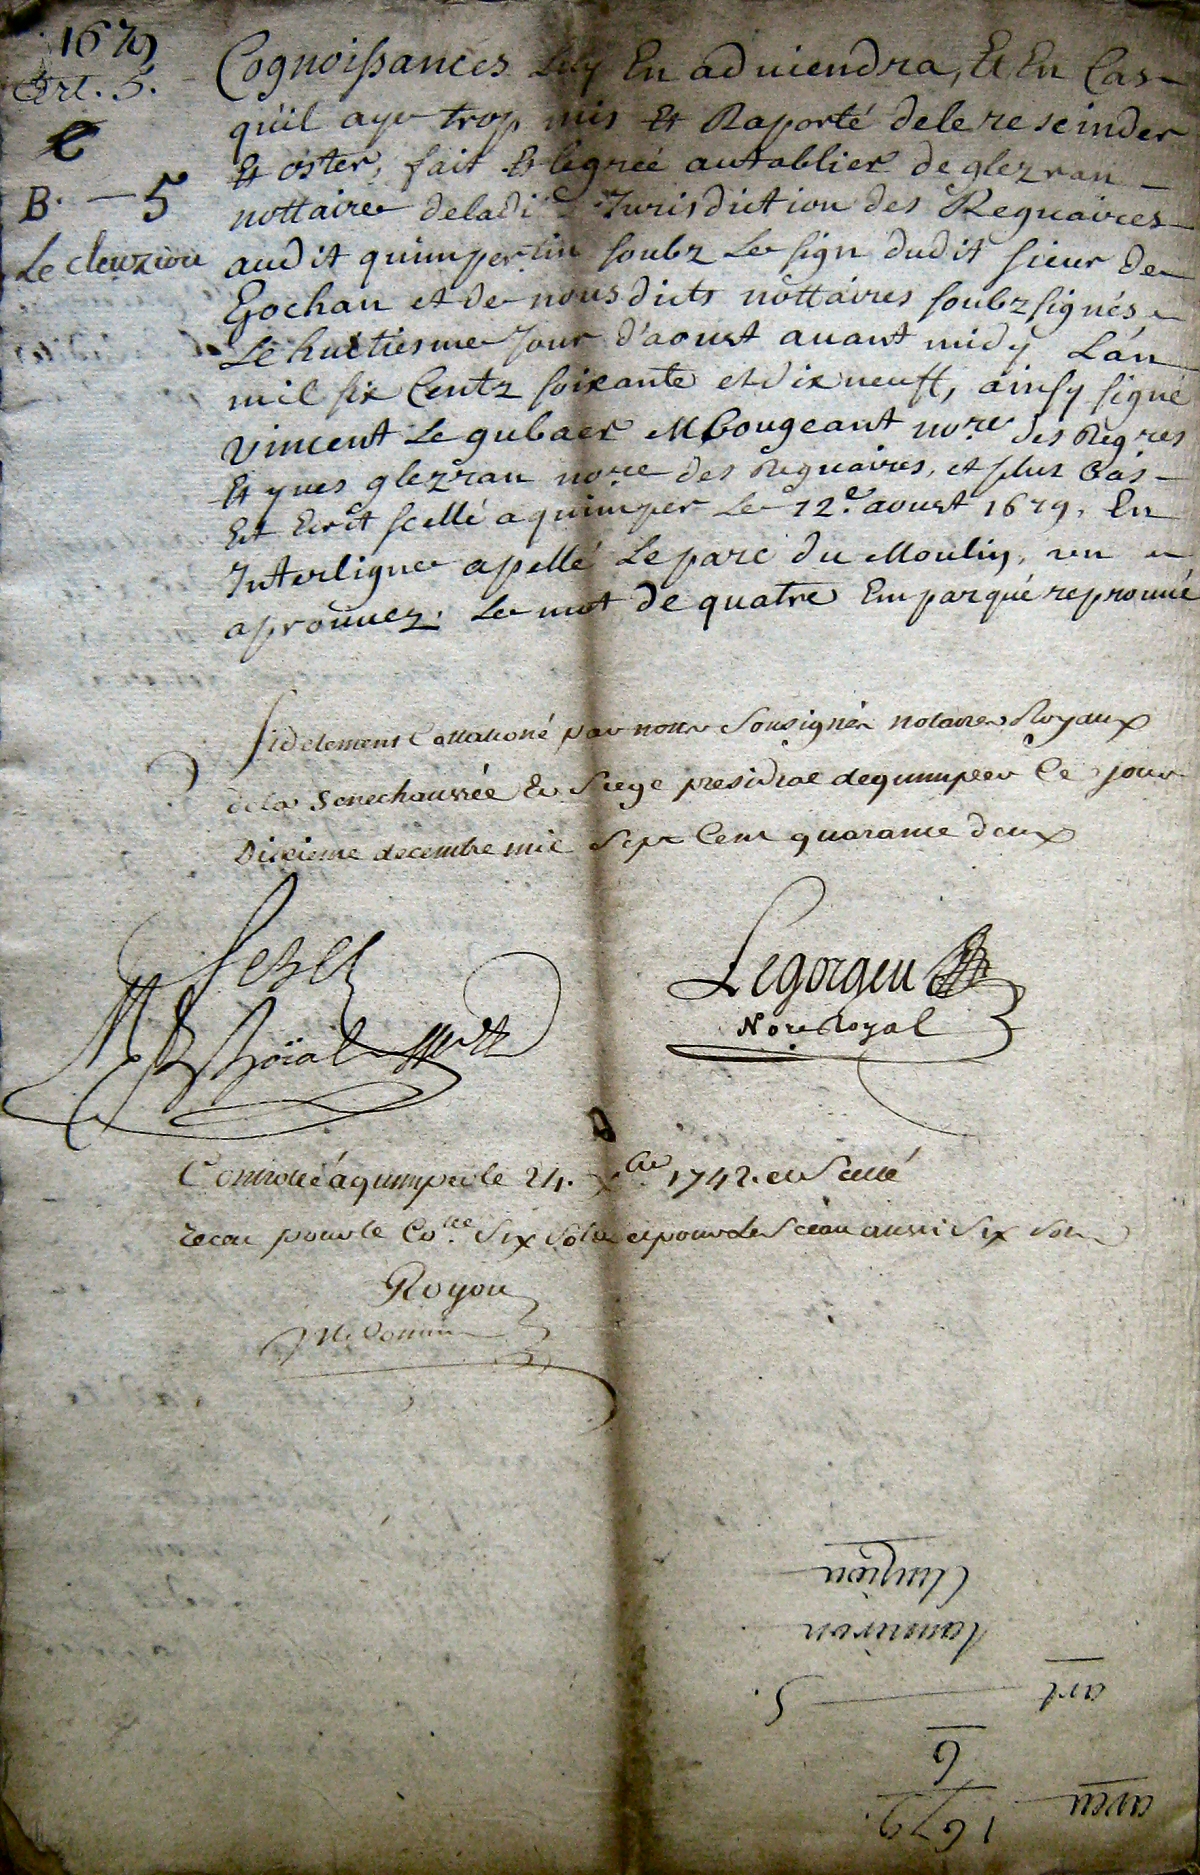 1679
Art. 5.
B. — 5
Le cleuziou
Cognoissances luy En adviendra, Et En Cas
quil aye trop mis Et Raporté dele rescinder
Et oster, fait Et legreé autablier de glezran
nottaire deladi Jurisdiction des Reguaires
audit quimpertin soubz Le sign dudit sieur De
et de nousdicts nottaires soubzsignés
Le huictiesme Jour d'aoust avant midy Lan
mil six Centz soixante et dix neuff, ainsy signé
Vincent Le gubaer M Gougeant nore des Regres
Et yves glezran nore des Reguaires, et plus bas
Est Ecrit scellé a quimper Le 12e aoust 1679. En
Interligne apellé Le parc du Moulin, un
aprouvez. Le mot de quatre Emparqué reprouvé
fidelement Collationé par nous Sousignés notaires Royaux
dela Senechaussée Et Siege presidial dequimper Ce jour
Dixieme decembre mil Sept Cent quarante deux
Röial
Legorgeu
Nore Royal
Controllé á quimper le 24. Xbre 1742. et Scellé
recu pour le Colle Six Sols et pour Le Sceau aussi Six Sols
Royou
Commis
aveu 1679.
6
art 5.
Lanniron
Cleuziou